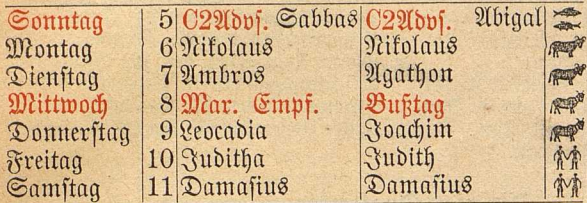 Sonntag 5 C2Advs. Sabbas C2Advs. Abigal
Montag 6 Nikolaus Nikolaus
Dienstag 7 Ambros Agathon
Mittwoch 8 Mar. Empf. Bußtag
Donnerstag 9 Leocadia Joachim
Freitag 10 Juditha Judith
Samstag 11 Damasius Damasius